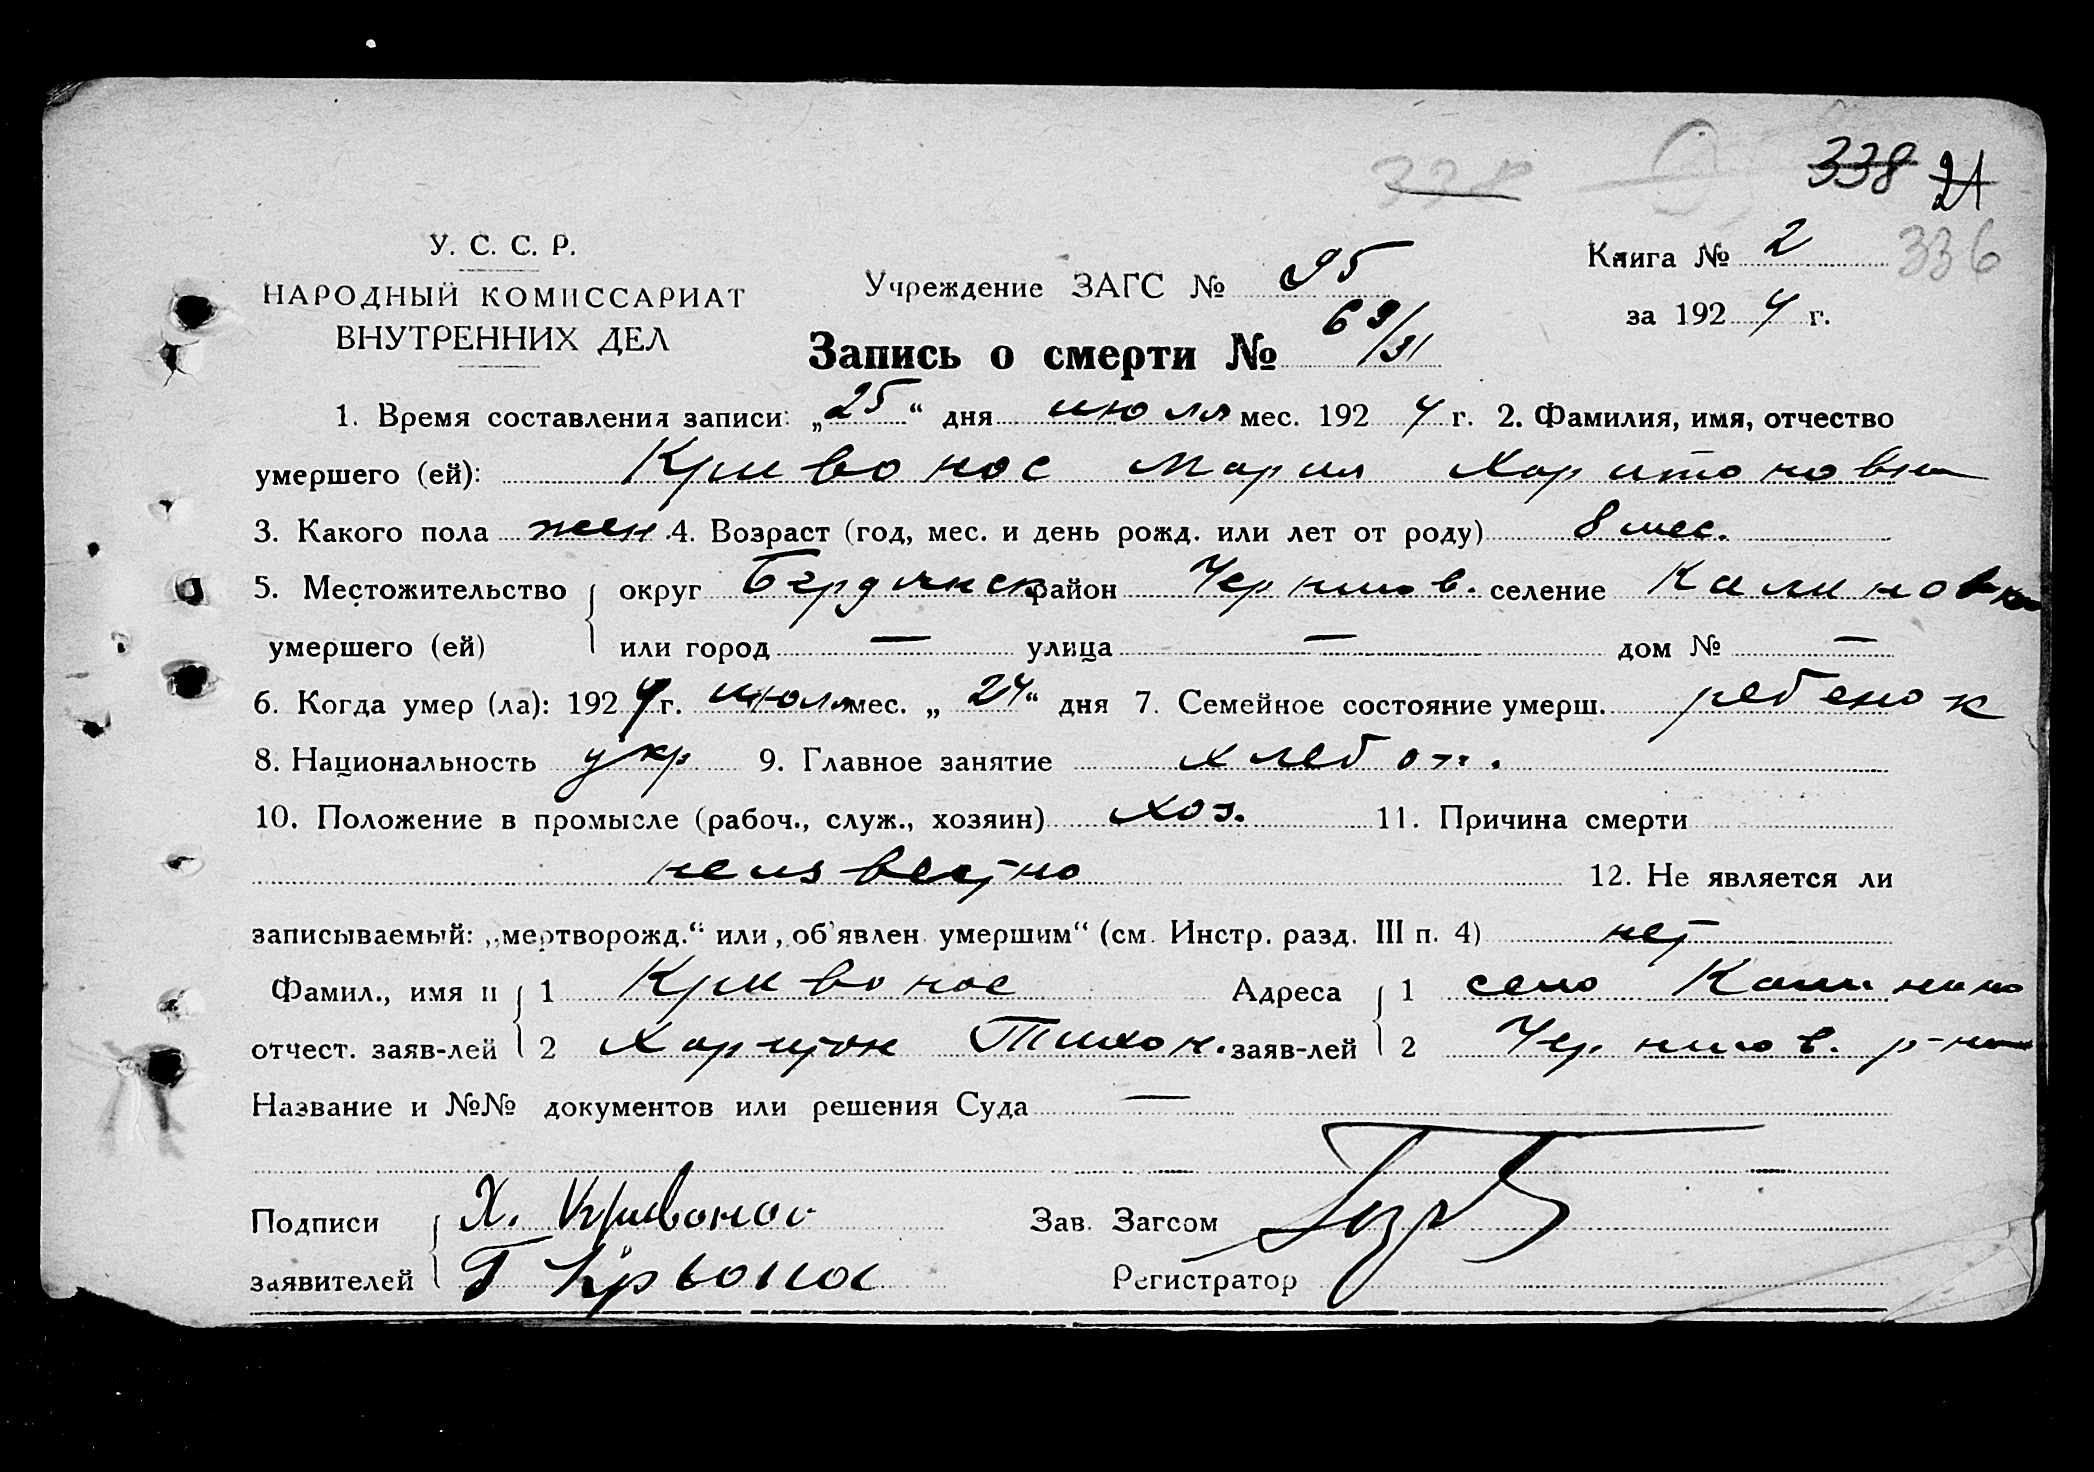 338 21
338
У. С. С. Р.
Книга № 2 336
НАРОДНЫЙ КОМИССАРИАТ
Учреждение ЗАГС № 95
ВНУТРЕННИХ ДЕЛ
за 1924 г.
Запись о смерти № 69/31
1. Время составления записи: „25“ дня июля мес. 1924 г. 2. Фамилия, имя, отчество
умершего (ей): Кривонос Мария Харитоновна
3. Какого пола жен. 4. Возраст (год, мес. и день рожд. или лет от роду) 8 мес.
5. Местожительство округ Бердянск район Чернигов. селение Калиновка
умершего (ей) или город — улица — дом № —
6. Когда умер (ла): 1924 г. июля мес. „24“ дня 7. Семейное состояние умерш. ребенок
8. Национальность укр 9. Главное занятие хлебоп.
10. Положение в промысле (рабоч., служ., хозяин) хоз. 11. Причина смерти
неизвестно 12. Не является ли
записываемый: „мертворожд.“ или „об'явлен умершим“ (см. Инстр. разд. III п. 4) нет
Фамил., имя и 1 Кривонос Адреса 1 село
отчест. заяв-лей 2 Харитон Тихон. заяв-лей 2 Чернигов. р-на
Название и №№ документов или решения Суда —
Подписи Х. Кривонос Зав. Загсом
заявителей Т Крвонос Регистратор